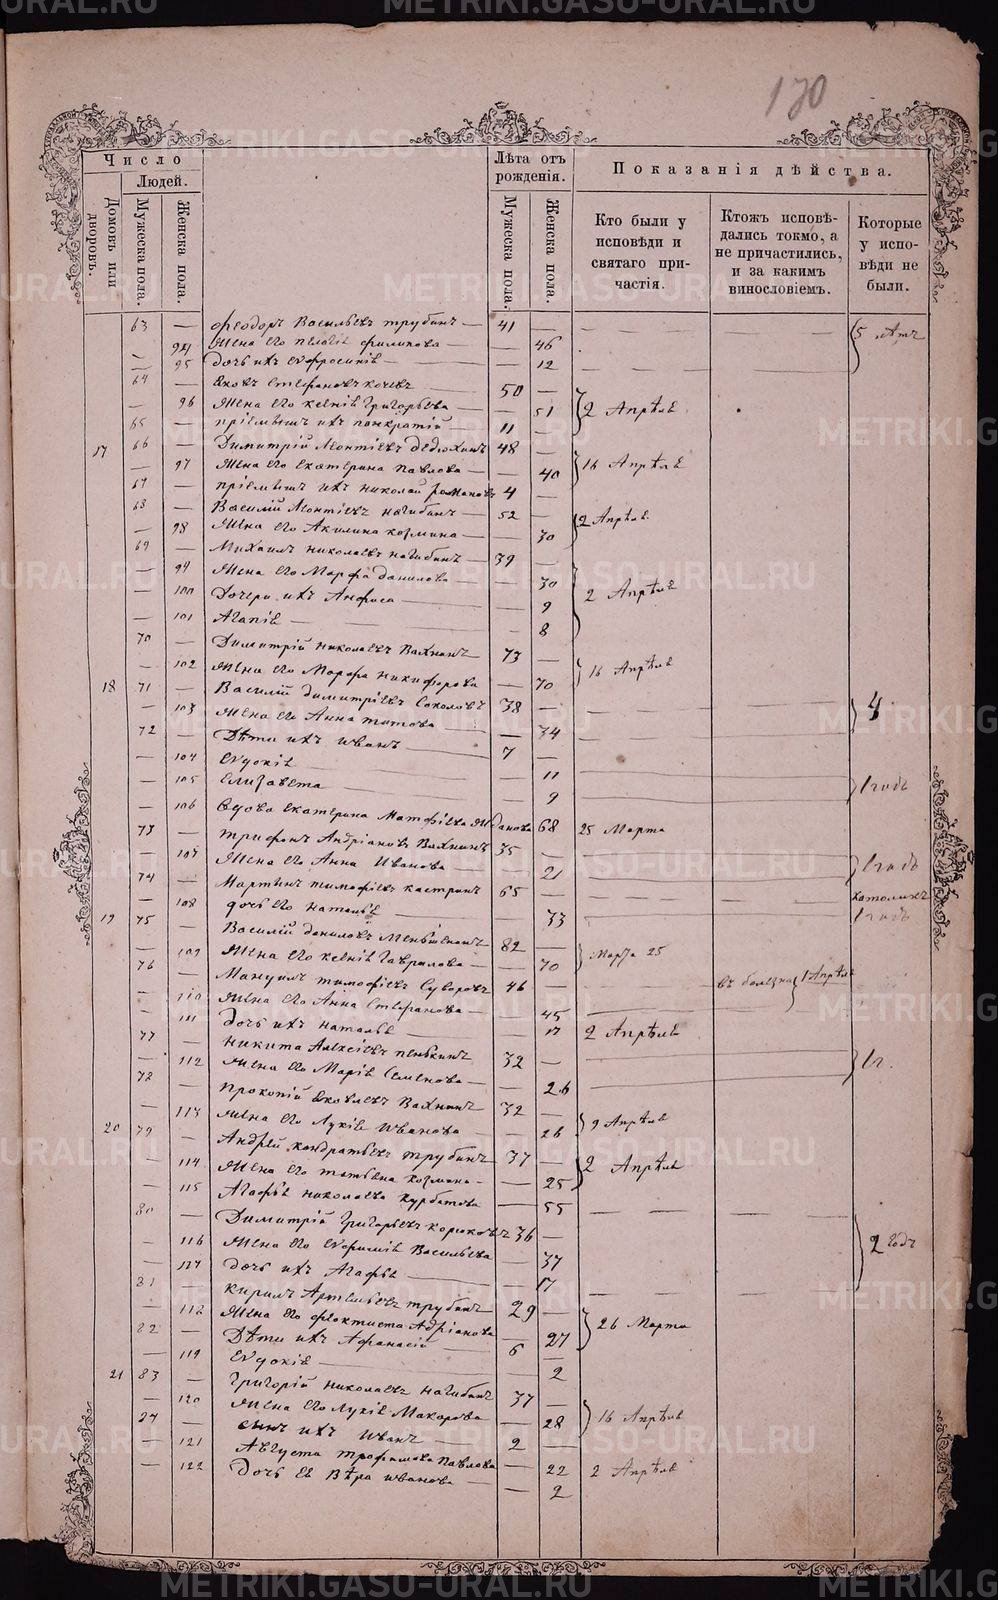 130
Число
Людей.
Домовъ или дворовъ.
Мужеска пола.
Женска пола.
Лѣта отъ рожденія.
Мужеска пола.
Женска пола.
Показанія дѣйства.
Кто были у исповѣди и святаго причастія.
Ктожъ исповѣдались токмо, а не причастились, и за какимъ винословіемъ.
Которые у исповѣди не были.
63 — Феодоръ Васильевъ Трубинъ — 41 — 5 лѣтъ
— 94 Жена его Пелагія Филипова — — 46
— 95 Дочь ихъ Евфросинія — — 12
64 — Яковъ Стефановъ — 50 —
— 96 Жена его Ксенія Григорьева — — 51 2 Апрѣля
65 — Пріемышъ ихъ Понкратій — 11 —
17 66 — Димитрій Леонтіевъ Дедюхинъ 48 —
— 97 Жена его Екатерина Павлова — — 40 16 Апрѣля
67 — Пріемышъ ихъ Николай Романовъ 4 —
68 — Василій Леонтіевъ Нагибинъ — 52 — 2 Апрѣля
— 98 Жена его Акилина Козмина — — 30
69 — Михаилъ Николаевъ Нагибинъ 39 —
— Жена его Марфа Данилова — 30 2 Апрѣля
— 100 Дочери ихъ Анфиса — — 9
— 101 Агапія — — 8
70 — Димитрій Николаевъ Вахнинъ 73 —
— 102 Жена его Марфа Никифорова — 70 16 Апрѣля
18 71 — Василій Димитріевъ Соколовъ 38 — 4
— 103 Жена его Анна Титова — — 34
72 — Дѣти ихъ Иванъ — 7 —
— 104 Евдокія — — 11
— 105 Елизавета — — 9 1 годъ
— 106 Вдова Екатерина Матфіева 68 25 Марта
73 — Трифонъ Андріановъ Вахнинъ 35 —
— 107 Жена его Анна Иванова — — 21 1 годъ
74 — Мартинъ Тимофіевъ 65 — Католикъ
— 108 Дочь его Наталья — 33 1 годъ
19 75 — Василій Даниловъ Меньшенинъ 82 —
— 109 Жена его Ксенія Гаврилова — — 70 Марта 25
76 — Мануилъ Тимофіевъ Суворовъ 46 — въ болезни 1 Апрѣля
— 110 Жена его Анна Стефанова — — 45
— 111 Дочь ихъ Наталья — — 17 2 Апрѣля
77 — Никита Алексіевъ Пенькинъ 32 —
— 112 Жена его Марія Семенова — — 26 1 г.
78 — Прокопій Яковлевъ Вахнинъ 32 —
— 113 Жена его Лукія Иванова — — 26 9 Апрѣля
20 79 — Андрей Кондратьевъ Трубинъ 37 —
— 114 Жена его Татьяна Козмина — — 25 2 Апрѣля
— 115 Агафья Николаева Курбатова — 55
80 — Димитрій Григорьевъ Корюковъ 36 —
— 116 Жена его Евфимія Васильева — 37 2 года
— 117 Дочь ихъ Агафья — — 17
81 — Кирилъ Артемьевъ Трубинъ 29 —
— 118 Жена его Феоктиста Адріанова — 27 26 Марта
82 — Дѣти ихъ Афанасій — 6 —
— 119 Евдокія — — 2
21 83 — Григорій Николаевъ Нагибинъ 37 —
— 120 Жена его Лукія Макарова — 28 16 Апрѣля
84 — Сынъ ихъ Иванъ — 2 —
— 121 Августа Трофимова Павлова — 22 2 Апрѣля
— 122 Дочь ея Вѣра Иванова — — 2
METRIKI.GASO-URAL.RU